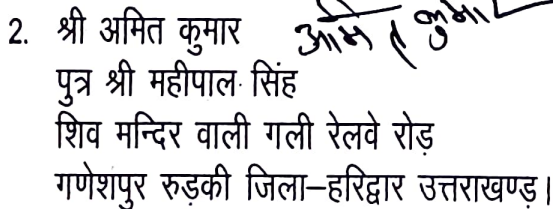 2. श्री अमित कुमार अमित कुमार
पुत्र श्री महीपाल सिंह
शिव मन्दिर वाली गली रेलवे रोड़
गणेशपुर रुड़की जिला–हरिद्वार उत्तराखण्ड़।